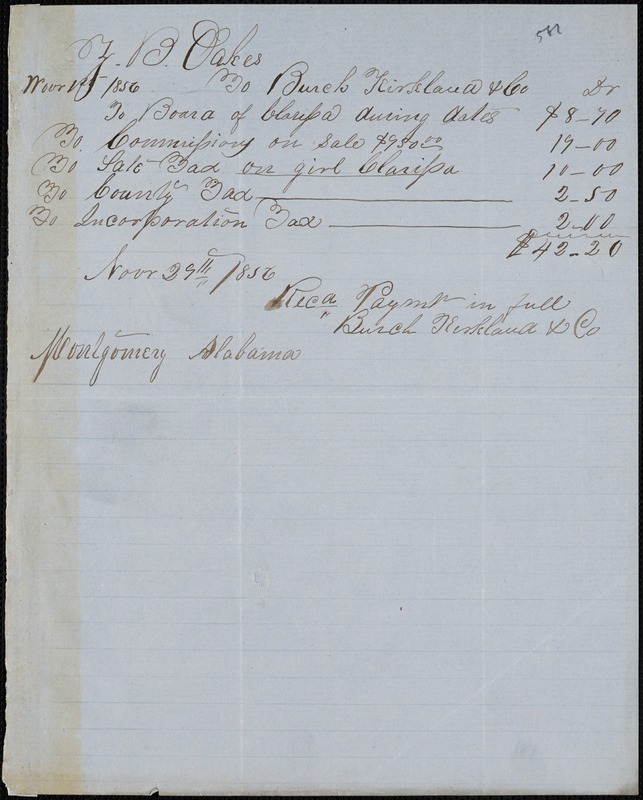 582
Z. B. Oakes
Novr 1st 1856 To Burch Kirkland & Co Dr
To Board of Clarissa during dates $8-70
To Commission on Sale $950.00 19-00
To Sale Tax on girl Clarissa 10-00
To County Tax 2-50
To Incorporation Tax 2-00
$42-20
Novr 29th 1856
Recd Paymt in full
Burch Kirkland & Co
Montgomery Alabama